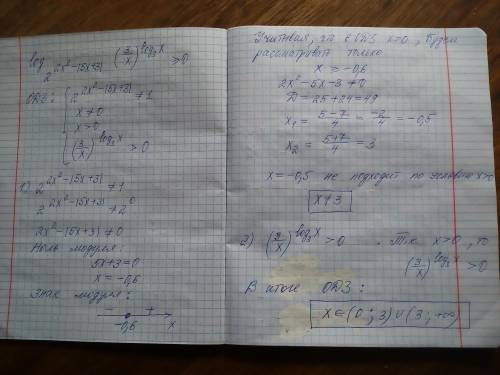 log_{2^{2x²-|5x+3|}} (3/x)^{log₃x} ≥ 0
ОДЗ: { 2^{2x²-|5x+3|} ≠ 1
x ≠ 0
x > 0
(3/x)^{log₃x} > 0
1) 2^{2x²-|5x+3|} ≠ 1
2^{2x²-|5x+3|} ≠ 2⁰
2x²-|5x+3| ≠ 0
Ноль модуля:
5x+3=0
x = -0,6
Знак модуля:
− +
-0,6 x
Учитывая, что в ОДЗ x>0, будем
рассматривать только
x ≥ -0,6
2x²-5x-3 ≠ 0
D = 25+24 = 49
x₁ = (5-7)/4 = -2/4 = -0,5
x₂ = (5+7)/4 = 3
x = -0,5 не подходит по условию x>
x ≠ 3
2) (3/x)^{log₃x} > 0 . Т.к. x>0, то
(3/x)^{log₃x} > 0
В итоге ОДЗ:
x ∈ (0; 3) ∪ (3; +∞)